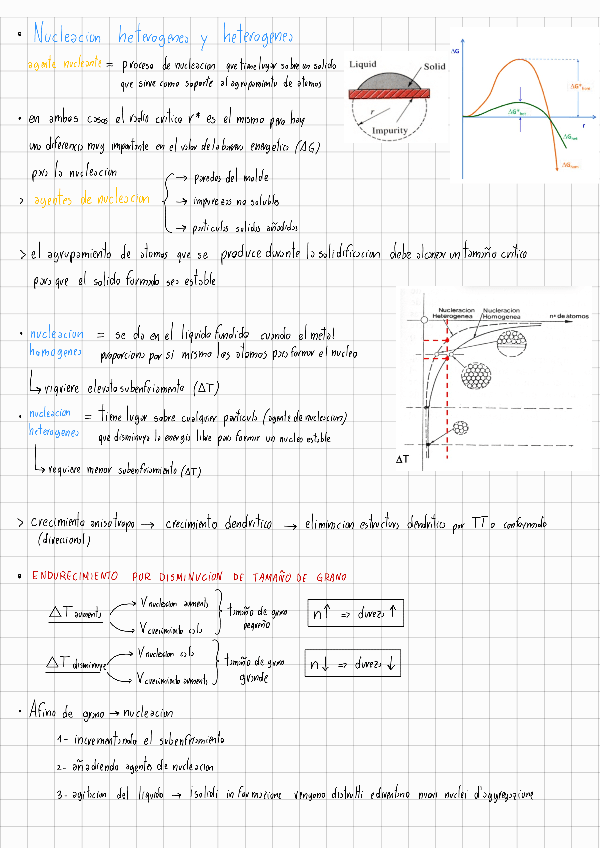 • Nucleacion heterogenea y heterogenea
agente nucleante = proceso de nucleacion que tiene lugar sobre un solido
que sirve como soporte al agrupamiento de atomos
Liquid
Solid
r
Impurity
ΔG
ΔG*hom
ΔG*het
r
ΔGhet
ΔGhom
• en ambos casos el radio critico r* es el mismo pero hay
una diferencia muy importante en el valor de la barrera energetica (ΔG)
para la nucleacion
> agentes de nucleacion
→ paredes del molde
→ impurezas no solubles
→ particulas solidas añadidas
> el agrupamiento de atomos que se produce durante la solidificacion debe alcanzar un tamaño critico
para que el solido formado sea estable
• nucleacion homogenea = se da en el liquido fundido cuando el metal
proporciona por si mismo los atomos para formar el nucleo
↳ riquiere elevato subenfriamento (ΔT)
• nucleacion heterogenea = tiene lugar sobre cualquier particula (agente de nucleacion)
que disminuya la energia libre para formar un nucleo estable
↳ requiere menor subenfriamento (ΔT)
Nucleracion Heterogenea
Nucleracion Homogenea
nº de átomos
ΔT
> crecimiento anisotropo → crecimiento dendritico → eliminacion estructura dendritica por TT o conformado
(direccional)
• ENDURECIMIENTO POR DISMINUCION DE TAMAÑO DE GRANO
ΔT aumenta → V nucleacion aumenta
→ V crecimiento cala
tamaño de grano pequeño
n↑ => dureza ↑
ΔT disminuye → V nucleacion cala
→ V crecimiento aumenta
tamaño de grano grande
n↓ => dureza ↓
• Afino de grano → nucleacion
1- incrementando el subenfriamiento
2- añadiendo agentes de nucleacion
3- agitacion del liquido → i solidi in formazione vengono distrutti e diventano nuovi nuclei d'aggregazione